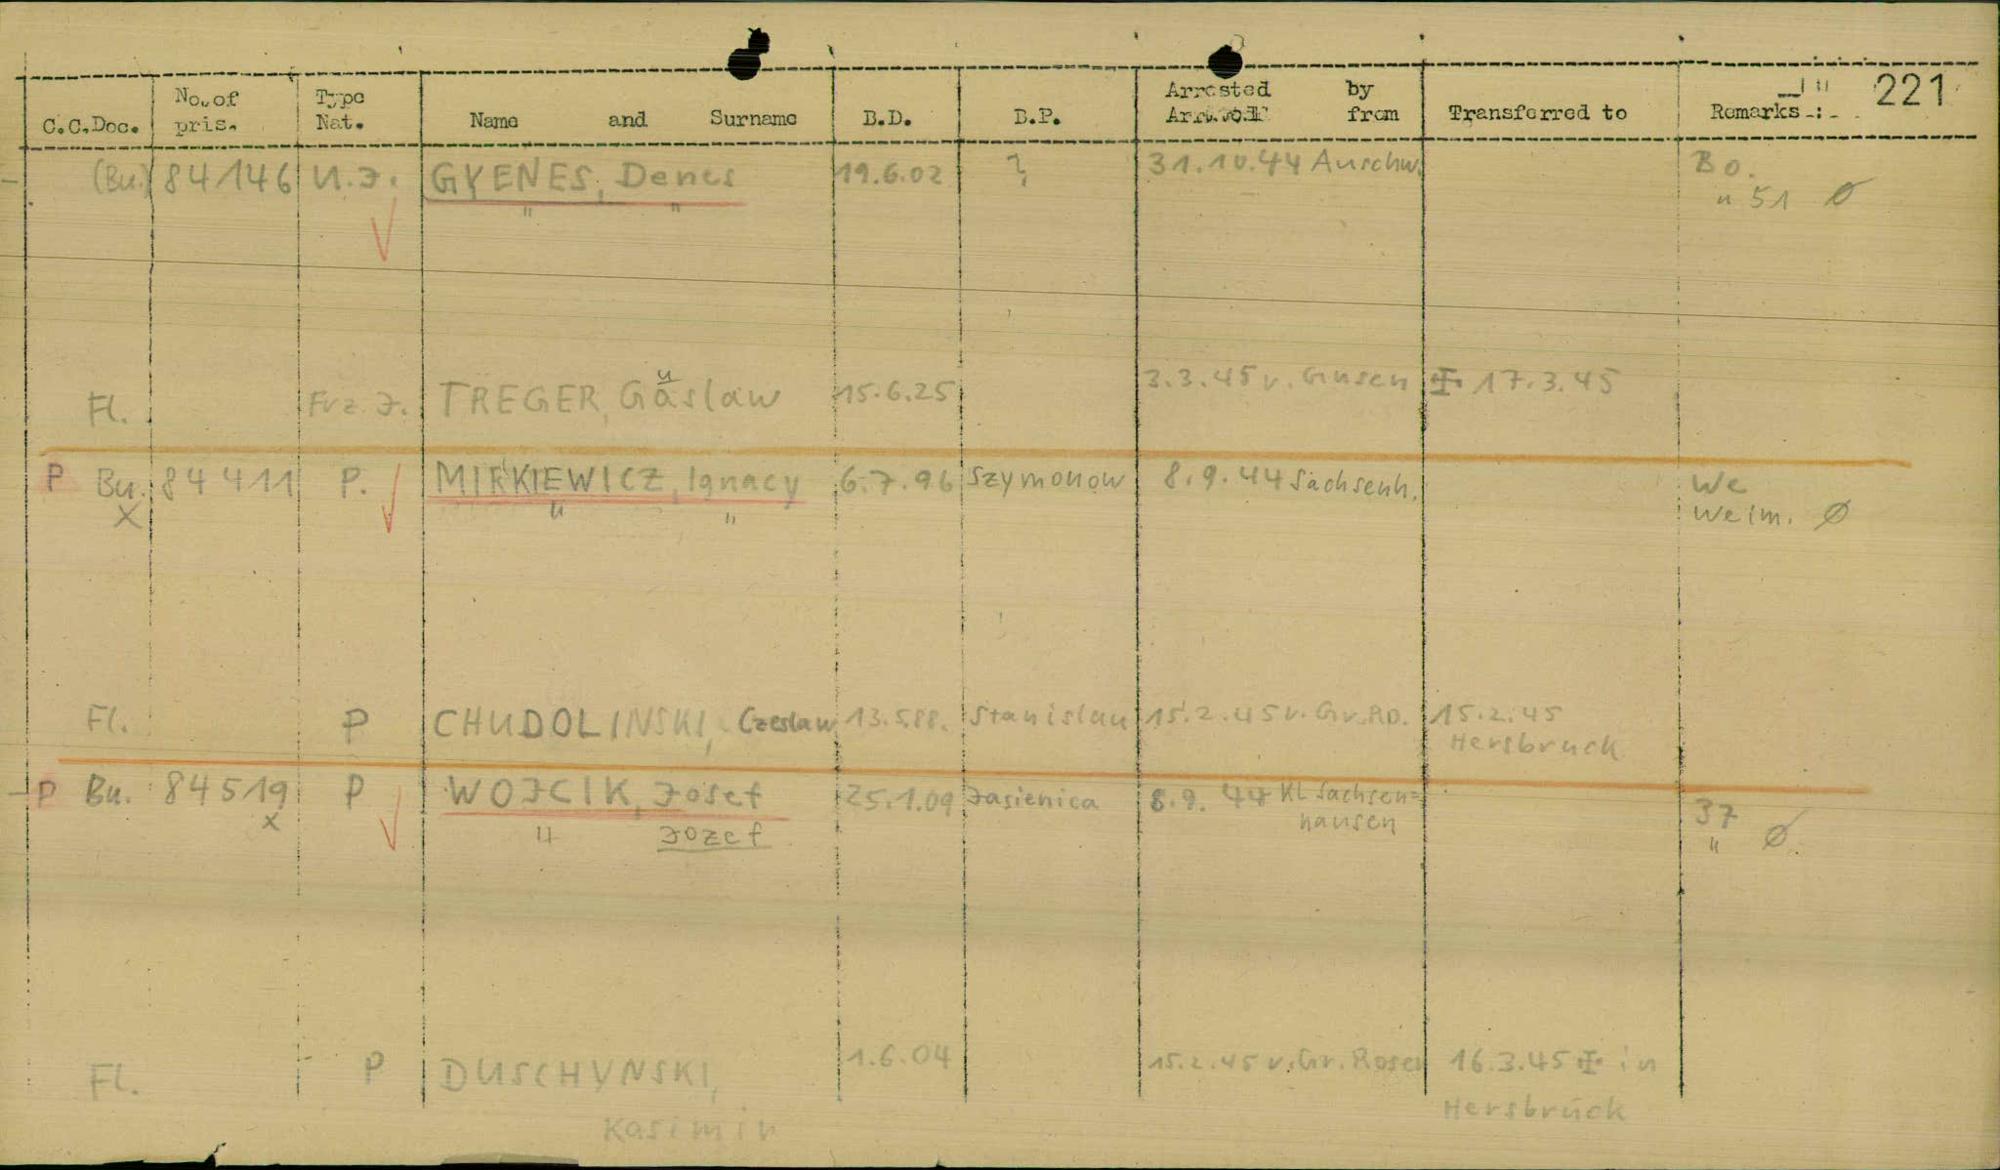 221
C.C.Doc. No. of pris. Type Nat. Name and Surname B.D. B.P. Arrested by from Transferred to Remarks.:.
(Bu.) 84146 U.J. GYENES, Denes 19.6.02 ? 31.10.44 Auschw. Bo.
" " " 51 Ø
Fl. Frz. J. TREGER, Gäslaw 15.6.25 3.3.45 v. Gusen 17.3.45
u
P Bu. 84411 P. MIRKIEWICZ, Ignacy 6.7.96 Szymonow 8.9.44 Sachsenh. We
X " " Weim. Ø
Fl. P CHUDOLINSKI, Czeslaw 13.5.88. Stanislau 15.2.45 v. Gr.Ro. 15.2.45
Hersbruck
P Bu. 84519 P WOJCIK, Josef 25.1.09 Jasienica 8.9. 44 KL Sachsen=
hausen 37
x " Jozef " Ø.
Fl. P DUSCHYNSKI, 1.6.04 15.2.45 v. Gr. Rosen 16.3.45 in
Kasimir Hersbruck